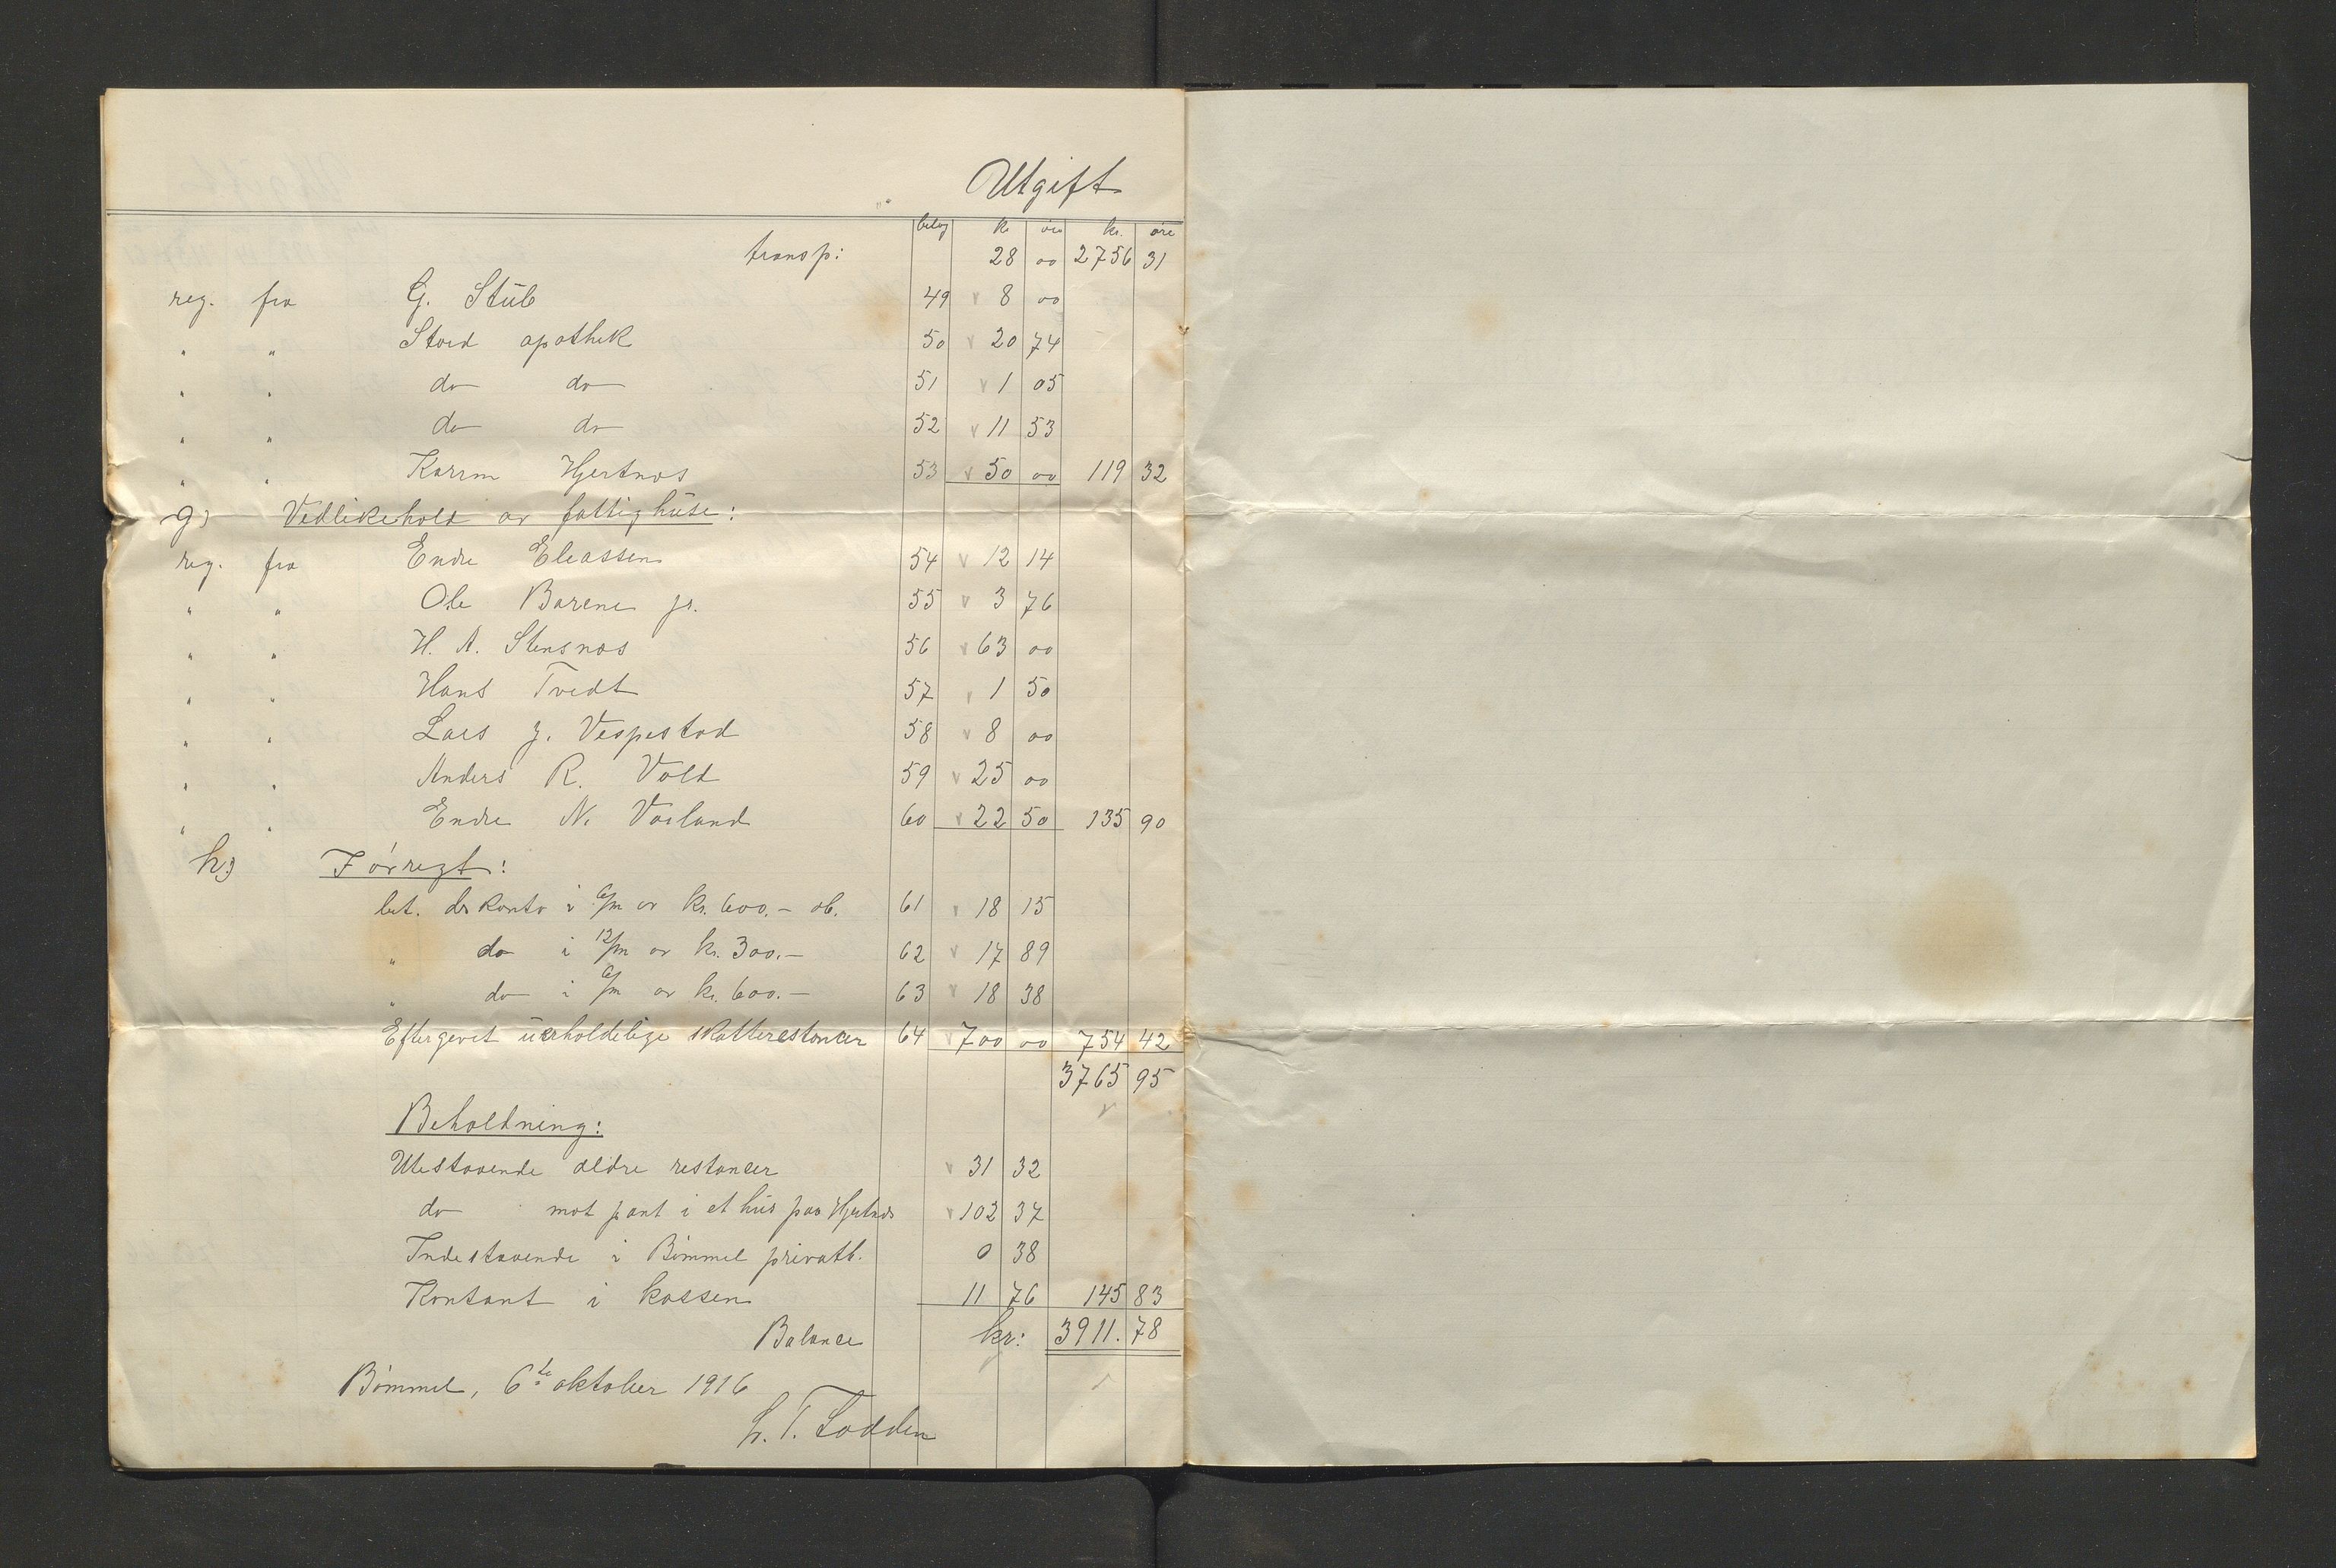 Utgift
belag kr øre kr. øre
transp: 28 00 2756 31
reg. fra G. Stub 49 8 00
" " Stord apothek 50 20 74
" " do do 51 1 05
" " do do 52 11 53
" " Karen Hjertnæs 53 50 00 119 32
g) Vedlikehold av fattighuse:
reg. fra Endre Eleassen 54 12 14
" " Ole Barene jr. 55 3 76
" " H. A. Stensnæs 56 63 00
" " Hans Tvedt 57 1 50
" " Lars J. Vespestad 58 8 00
" " Anders R. Vold 59 25 00
" " Endre N. Vorland 60 22 50 135 90
h) Førregt:
bet. diskonto i 6/m av kr. 600.- ob. 61 18 15
" do i 12/m av kr. 300.- 62 17 89
" do i 6/m av kr. 600.- 63 18 38
Eftergevet uerholdelige skatterestancer 64 700 00 754 42
3765 95
Beholdning:
Utestaaende ældre restancer 31 32
do mot pant i et hus paa Hjertnæs 102 37
Indestaaende i Bømmel privatb. 0 38
Kontant i kassen 11 76 145 83
Balance kr: 3911.78
Bømmel, 6te oktober 1916
L. T. Lodden